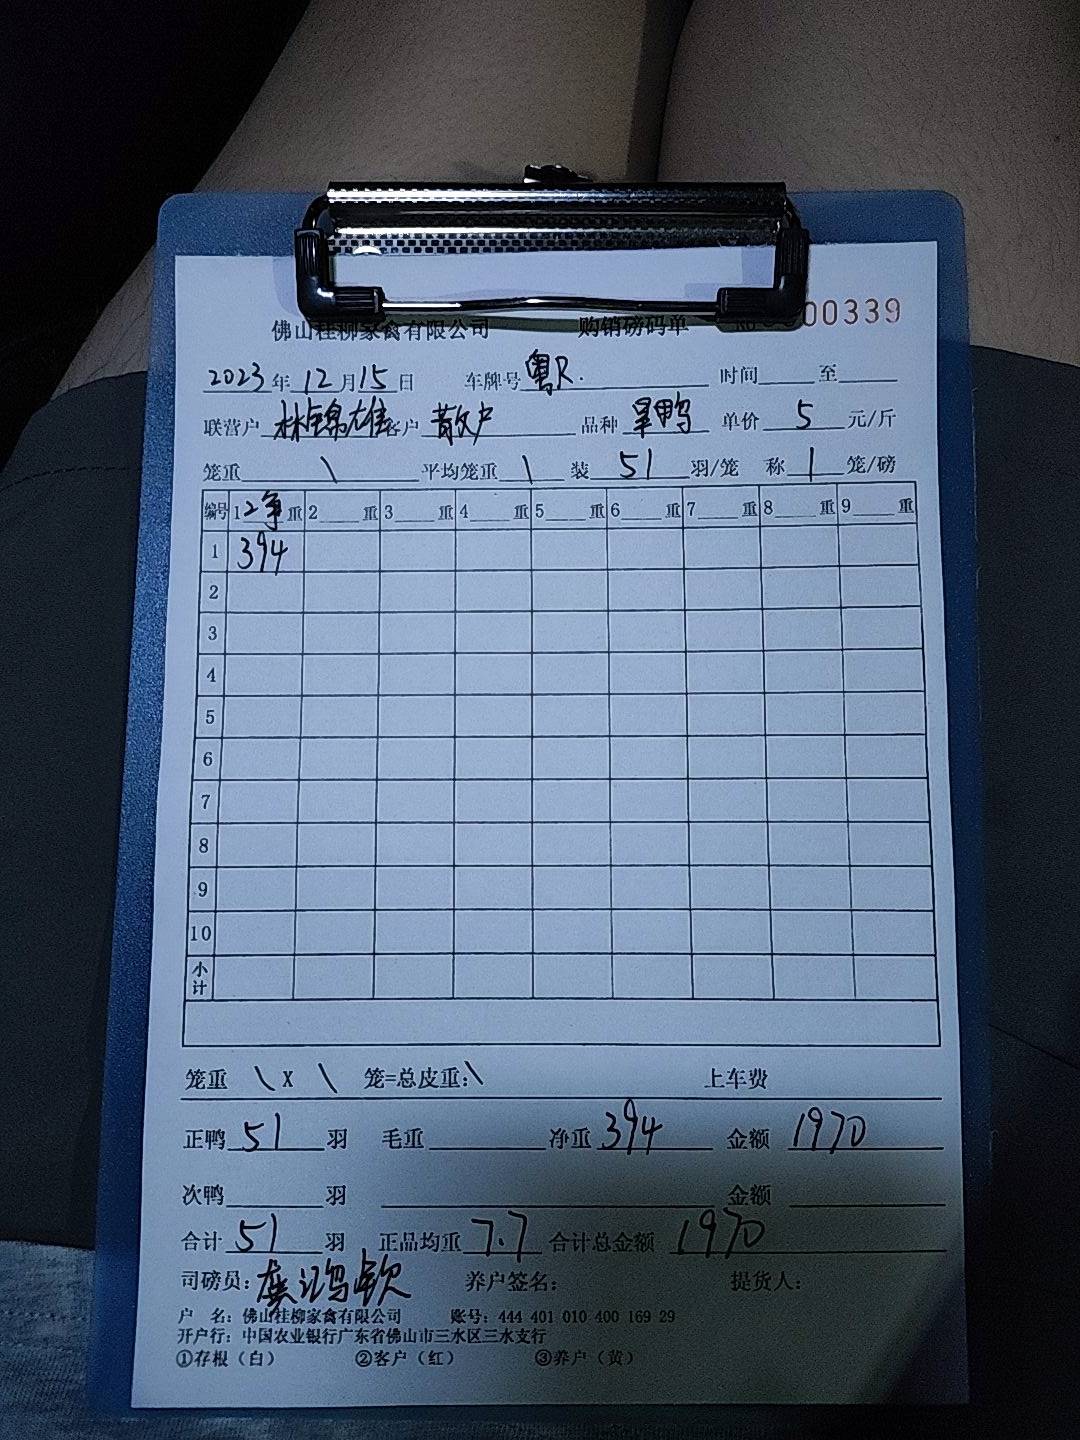 佛山桂柳家禽有限公司 购销磅码单 00339
2023年12月15日 车牌号粤R. 时间 至
联营户林锦雄客户散户 品种旱鸭 单价5元/斤
笼重\ 平均笼重\ 装51羽/笼 称1笼/磅
编号 1 净重 2 重 3 重 4 重 5 重 6 重 7 重 8 重 9 重
1 394
2
3
4
5
6
7
8
9
10
小计
笼重 \ X \ 笼=总皮重:\ 上车费
正鸭51羽 毛重 净重394 金额1970
次鸭 羽 金额
合计51羽 正品均重7.7 合计总金额1970
司磅员:龚鸿钦 养户签名: 提货人:
户 名: 佛山桂柳家禽有限公司 账号: 444 401 010 400 169 29
开户行: 中国农业银行广东省佛山市三水区三水支行
①存根(白) ②客户(红) ③养户(黄)